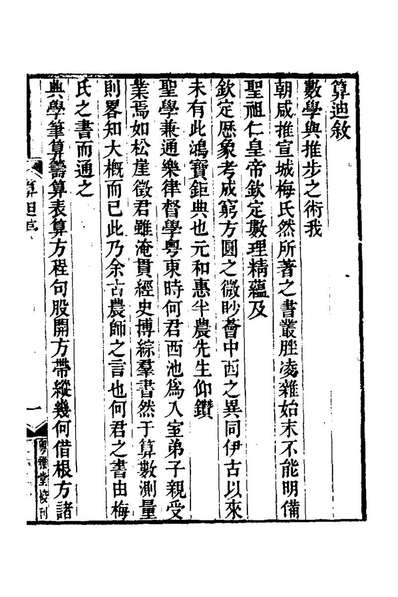 算迪敘
數學與推步之術我
朝咸推宣城梅氏然所著之書叢脞凌雜始末不能明備
聖祖仁皇帝欽定數理精蘊及
欽定歷象考成窮方圓之微眇薈中西之異同伊古以來
未有此鴻寶鉅典也元和惠半農先生仰鑽
聖學兼通樂律督學粵東時何君西池為入室弟子親受
業焉如松崖徵君雖淹貫經史博綜羣書然于算數測量
則畧知大概而已此乃余古農師之言也何君之書由梅
氏之書而通之
典學筆算籌算表算方程句股開方帶縱幾何借根方諸
算迪序
一
粵雅堂校刊